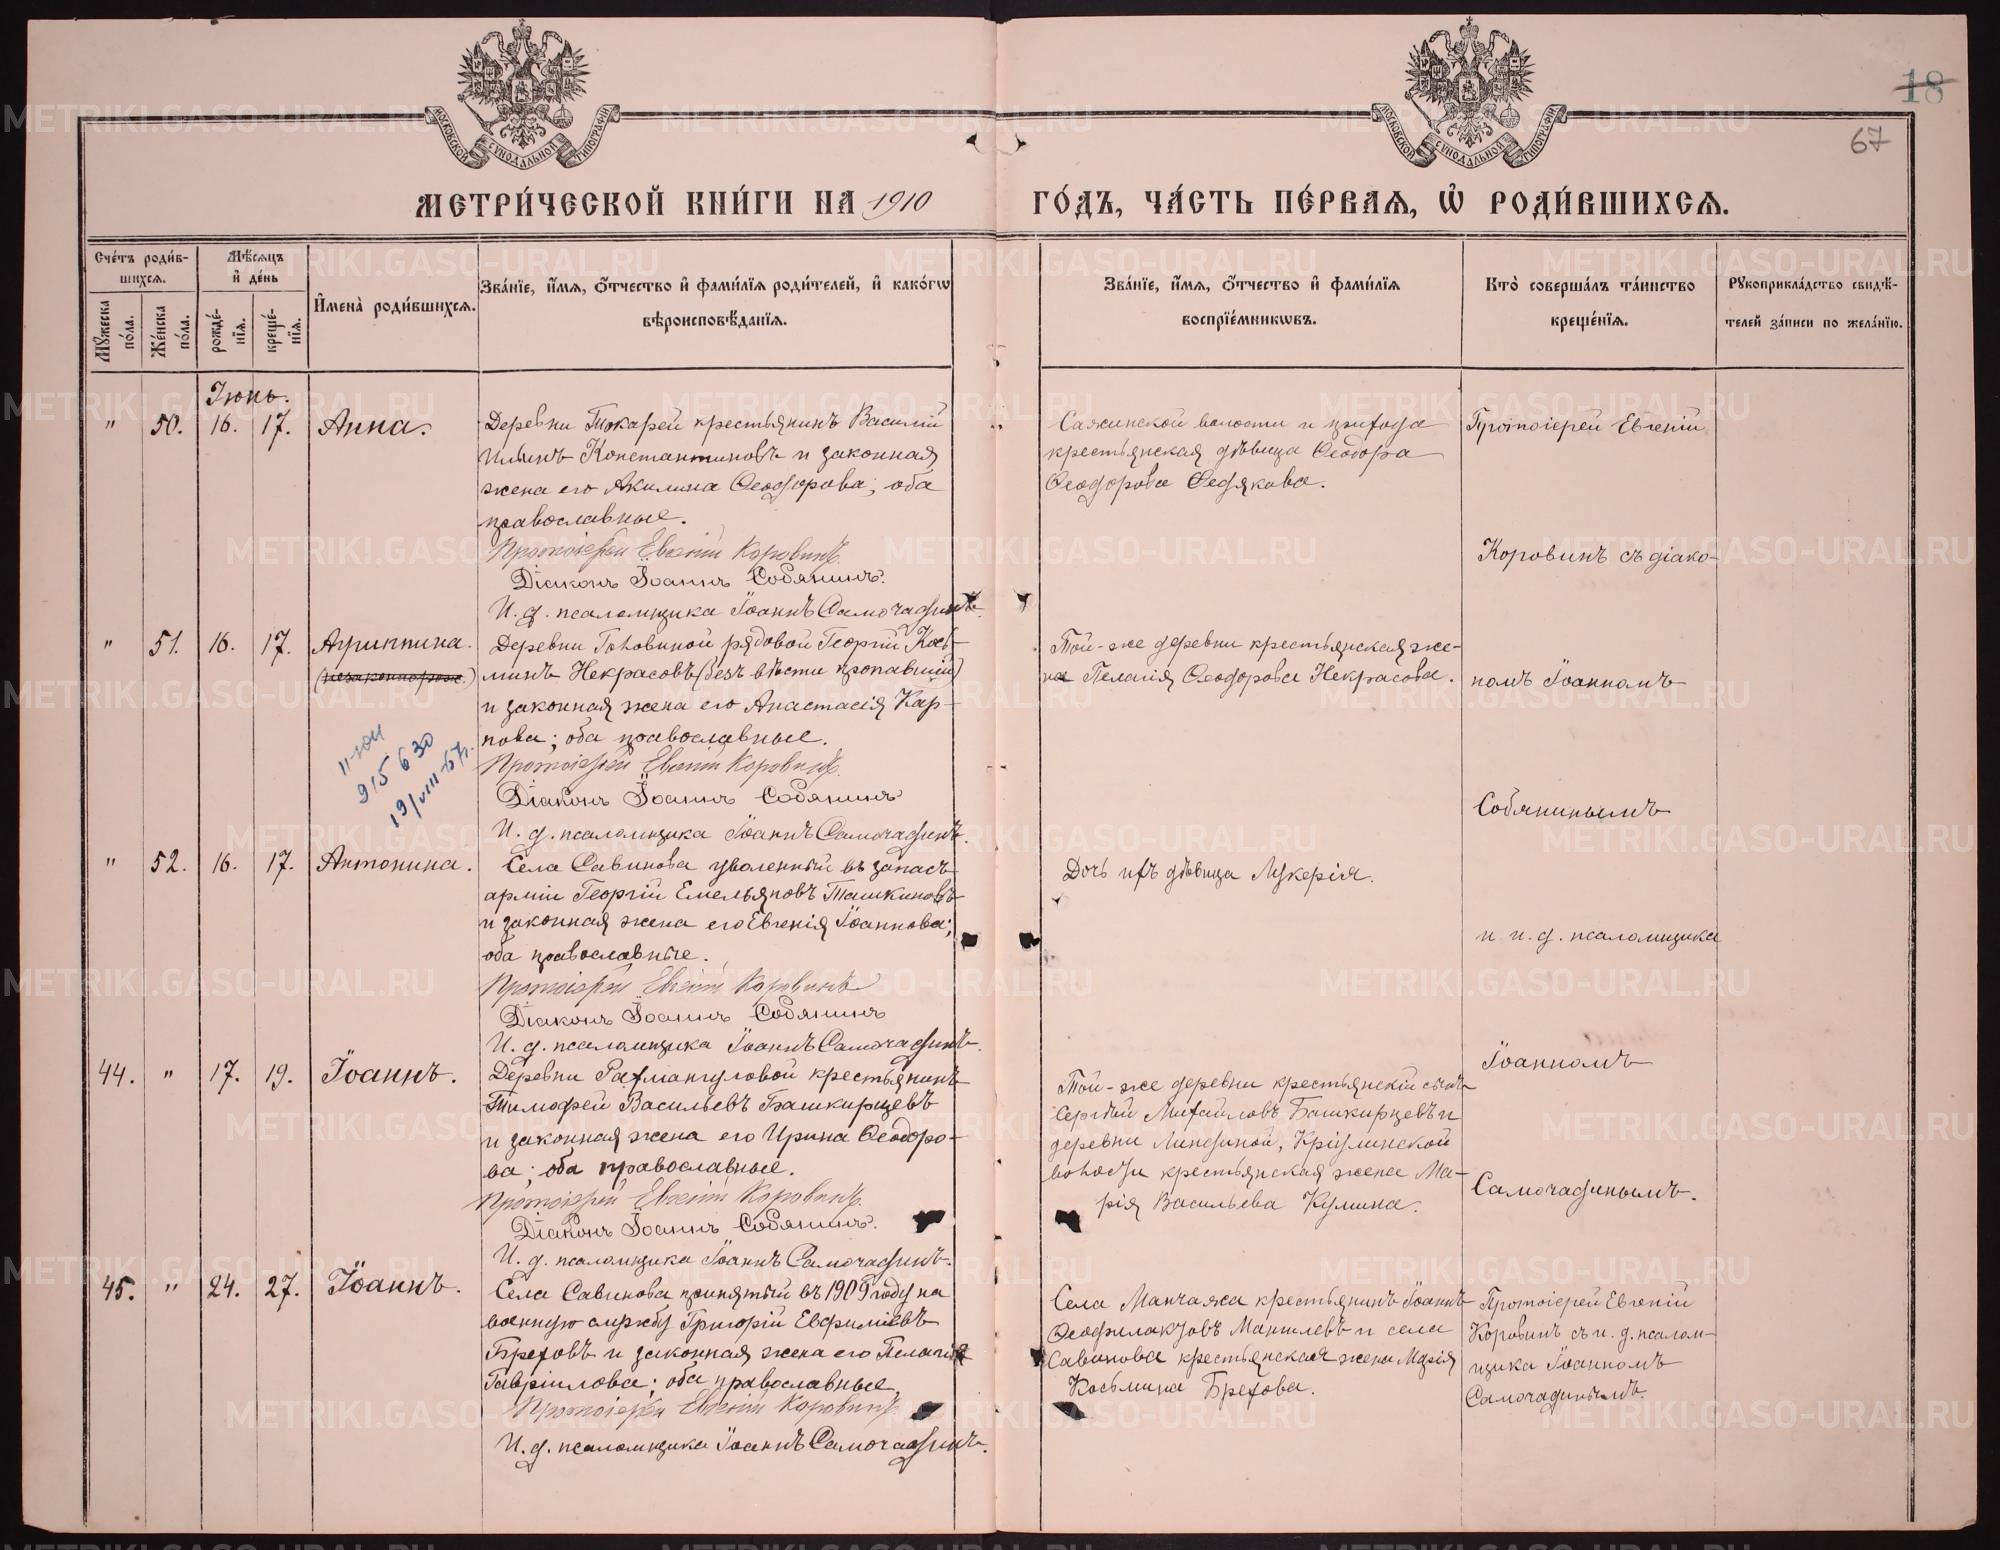 МОСКОВСКОЙ СѴНОДАЛЬНОЙ ТИПОГРАФІИ
МОСКОВСКОЙ СѴНОДАЛЬНОЙ ТИПОГРАФІИ
18
67
МЕТРИ́ЧЕСКОЙ КНИ́ГИ НА 1910 ГО́ДЪ, ЧА́СТЬ ПЕ́РВАЯ, Ѡ҆ РОДИ́ВШИХСЯ.
Сче́тъ роди́в-
шихся.
Мѣ́сяцъ
и҆ де́нь
Мꙋ́жеска по́ла.
Же́нска по́ла.
рожде́-
нїя.
креще́-
нїя.
И҆мена̀ роди́вшихся.
Зва́нїе, и҆́мя, ѻ҆́тчество и҆ фами́лїя роди́телей, и҆ како́гѡ
вѣроисповѣ́данїя.
Зва́нїе, и҆́мя, ѻ҆́тчество и҆ фами́лїя
воспрїе́мникѡвъ.
Кто̀ соверша́лъ та́инство
креще́нїя.
Рꙋкоприкла́дство свидѣ́-
телей за́писи по жела́нїю.
Іюнь.
" 50. 16. 17. Анна.
Деревни Токарей крестьянинъ Василій
Ильинъ Константиновъ и законная
жена его Акилина Ѳеодорова; оба
православные.
Протоіерей Евгеній Коровинъ.
Діаконъ Іоаннъ Собянинъ.
И. д. псаломщика Іоаннъ Самочадинъ.
Сажинской волости и прихода
крестьянская дѣвица Ѳеодора
Ѳеодорова Федякова.
Протоіерей Евгеній
Коровинъ съ діако-
" 51. 16. 17. Агриппина.
(незаконнорож.)
Деревни Головиной рядовой Георгій Кось-
минъ Некрасовъ (безъ вѣсти пропавшій)
и законная жена его Анастасія Кар-
пова; оба православные.
Протоіерей Евгеній Коровинъ.
Діаконъ Іоаннъ Собянинъ
И. д. псаломщика Іоаннъ Самочадинъ.
II-ЮИ
915630
19/VIII-67г.
Той-же деревни крестьянская же-
на Пелагія Ѳеодорова Некрасова.
номъ Іоанномъ
Собянинымъ
" 52. 16. 17. Антонина.
Села Савинова уволенный въ запасъ
арміи Георгій Емельяновъ Ташкиновъ
и законная жена его Евгенія Іоаннова;
оба православные.
Протоіерей Евгеній Коровинъ
Діаконъ Іоаннъ Собянинъ
И. д. псаломщика Іоаннъ Самочадинъ.
Дочь ихъ дѣвица Лукерія.
и и. д. псаломщика
Іоанномъ
44. " 17. 19. Іоаннъ.
Деревни Рахмангуловой крестьянинъ
Тимофей Васильевъ Башкирцевъ
и законная жена его Ирина Ѳеодоро-
ва; оба православные.
Протоіерей Евгеній Коровинъ.
Діаконъ Іоаннъ Собянинъ.
И. д. псаломщика Іоаннъ Самочадинъ.
Той-же деревни крестьянскій сынъ
Сергѣй Михайловъ Башкирцевъ и
деревни Линдиной, Кріулинской
волости крестьянская жена Ма-
рія Васильева Кулина.
Самочадинымъ.
45. " 24. 27. Іоаннъ.
Села Савинова принятый въ 1909 году на
военную службу Григорій Евфиміевъ
Бреховъ и законная жена его Пелагія
Гавріилова; оба православные.
Протоіерей Евгеній Коровинъ
И. д. псаломщика Іоаннъ Самочадинъ.
Села Манчажа крестьянинъ Іоаннъ
Ѳеофилактовъ Мангилевъ и села
Савинова крестьянская жена Марія
Косьмина Брехова.
Протоіерей Евгеній
Коровинъ съ и. д. псалом-
щика Іоанномъ
Самочадинымъ.
METRIKI.GASO-URAL.RU